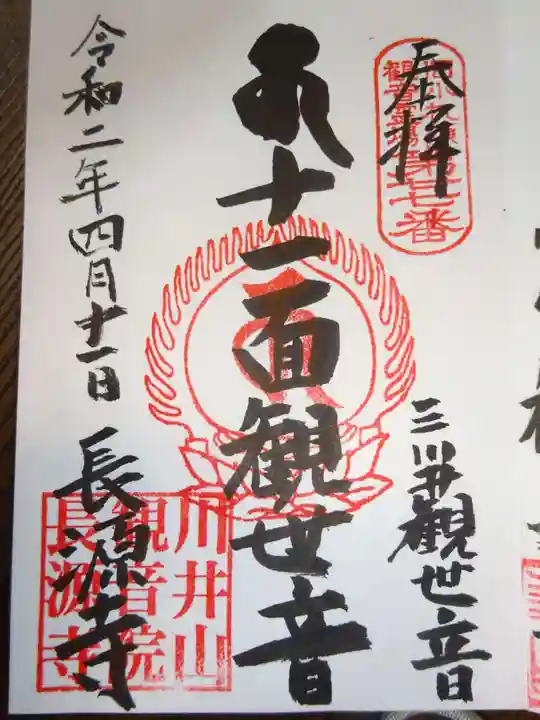 奉拝
観音霊場
第廿七番
三川井観世音
十一面観世音
川井山
観音院
長源寺
令和二年四月十一日
長源寺